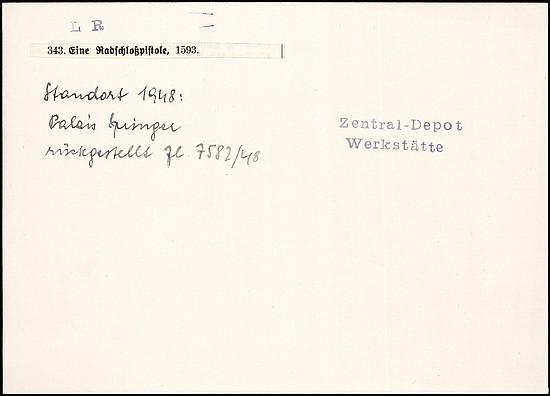 L R
343. Eine Radschloßpistole, 1593.
Standort 1948:
Palais Springer
rückgestellt Zl. 7582/48
Zentral-Depot
Werkstätte